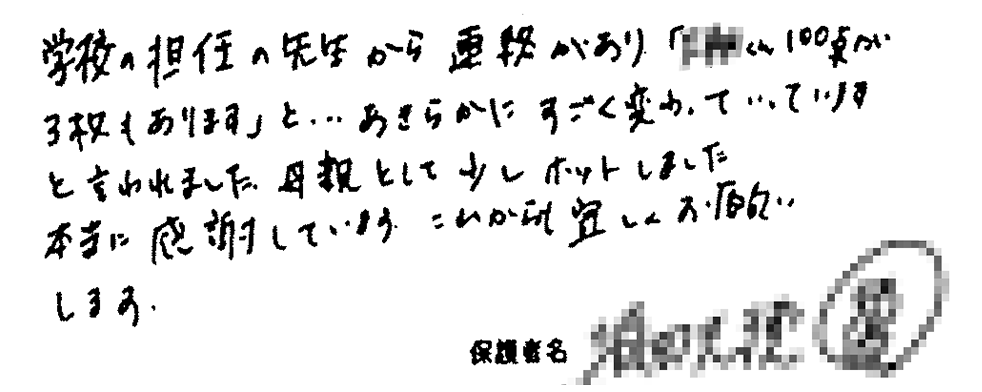 学校の担任の先生から連絡があり「くん100点が
3枚もあります」と…あきらかにすごく変わっていっています
と言われました。母親として少しホットしました
本当に感謝しています これからも宜しくお願い
します。
保護者名